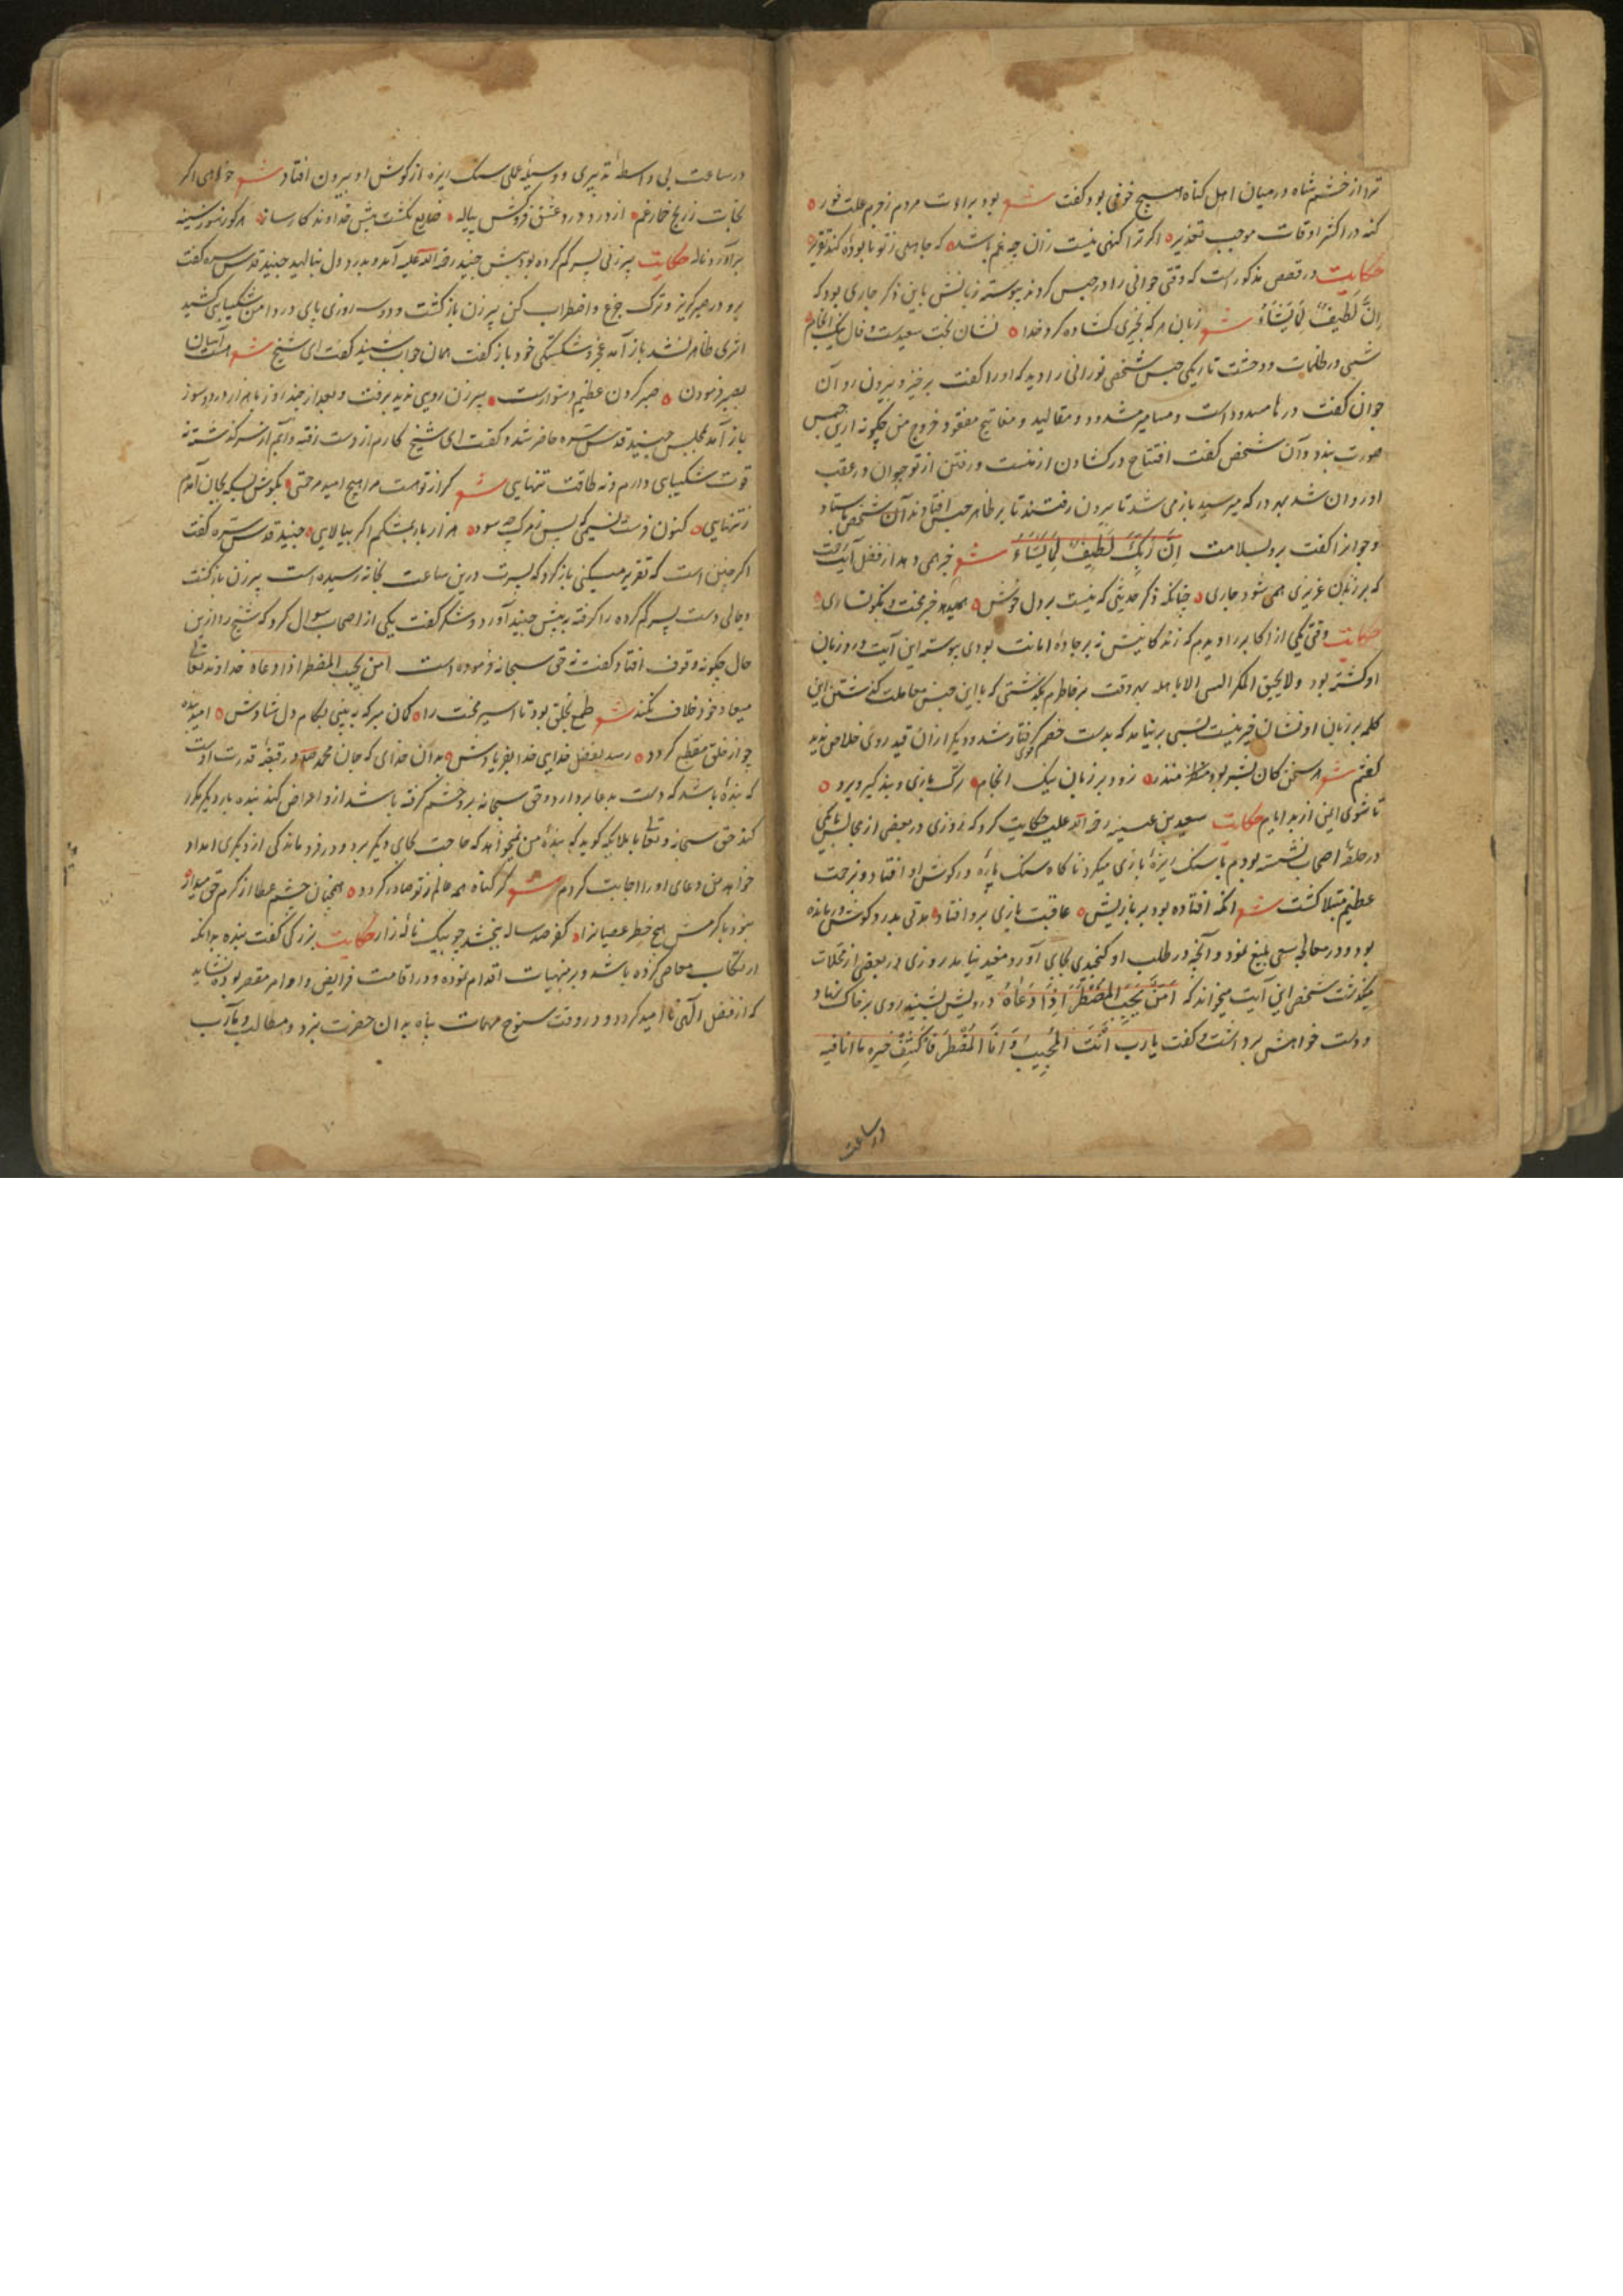 ترا از خشم شاه در میان اهل گناه هیچ خوفی بود گفت شعر بود براءت مردم ز جرم علت فوز
گنه در اکثر اوقات موجب تعذیر اگر ترا گنهی نیست زان چه غم باشد که جاهلی ز تو نابوده کند تقریر
حکایت در قصص مذکور است که وقتی جوانی را در حبس کردند پیوسته زبانش باین ذکر جاری بود که
اِنَّ لَطِیفٌ لِمَا یَشَاءُ شعر زبان هر که بخیری گشاده کرد خدا نشان بخت سعیدست و فال نیک انجام
شبی در ظلمات و وحشت تاریکی حبس شخصی نورانی را دید که او را گفت برخیز و بیرون رو آن
جوان گفت درها مسدود است و مسامیر مشدود و مقالید و مفاتیح مفقود خروج من چگونه ازین حبس
صورت بندد آن شخص گفت افتتاح در گشادن از منست و رفتن از تو جوان در عقب
او روان شد بهر در که میرسید باز می شد تا بیرون رفتند تا بر ظاهر حبس افتادند آن شخص باستاد
و جوانرا گفت برو بسلامت اِنَّ رَبِّی لَطِیفٌ لِمَا یَشَاءُ شعر خبر همی دهد از فضل آیت رحمت
که بر زبان عزیزی همی شود جاری چنانکه ذکر حدیثی که نیست بر دل خوش همیدهد خبر محنت و نگونساری
حکایت وقتی یکی از اکابر را دیدم که زندگانیش نه بر جاده امانت بودی پیوسته این آیت ورد زبان
او گشته بود ولا یحیق المکر السیی الا باهله بهر وقت بر خاطرم بگذشتی که با این حبس معاملت گذشتن این
کلمه بر زبان او نشان خیر نیست بسی برنیامد که بدست خصم قوی گرفتار شد و دیگر از آن قید روی خلاص ندید
گفتم شعر هر سخن کان بشر بود منذر زود بر زبان نیک انجام رگ بازی و پند گیر و برو
تا شوی ایمن از بد ایام حکایت سعید بن عنبسه رحمة الله علیه حکایت کرد که روزی در بعضی از مجالس با یکی
در حلقه اصحاب نشسته بودم با سنگ ریزه بازی میکرد ناگاه سنگ پاره در گوش او افتاد و بزحمت
عظیم مبتلا گشت شعر آنکه افتاده بود بر بازیش عاقبت بازی برو افتاد مدتی بدرد گوش درمانده
بود و در معالجه سعی بلیغ نمود و آنچه در طلب او گنجیدی بجای آورد مفید نیامد روزی در بعضی از محلات
میگذشت شخصی این آیت میخواند که اَمَّنْ یُجِیبُ الْمُضْطَرَّ اِذَا دَعَاهُ درویش بشنید روی بر خاک نهاد
و دست خواهش برداشت و گفت یا رب اَنْتَ الْمُجِیبُ وَ اَنَا الْمُضْطَرُّ فَاکْشِفْ ضیره ما انا فیه
در ساعت
در ساعت بی واسطه تدبیری و وسیله عملی سنگ ریزه از گوش او بیرون افتاد شعر خواهی اگر
نجات ز رنج خمار غم از درد و درد عشق فروکش پیاله ضایع نگشت پیش خداوند کارساز هر کو ز سوز سینه
برآورد ناله حکایت پیرزنی پسر گم کرده بود پیش جنید رحمة الله علیه آمد و بدرد دل بنالید جنید قدس سره گفت
برو در صبر گریز و ترک جزع و اضطراب کن پیرزن بازگشت و دو سه روزی پای در دامن شکیبایی کشید
اثری ظاهر نشد باز آمد عجز و شکستگی خود باز گفت همان جواب شنید گفت ای شیخ شعر هست آسان
بصبر فرمودن صبر کردن عظیم دشوارست پیرزن رویی ندید برفت و بعد از چند روز با هزار درد و سوز
باز آمد بمجلس جنید قدس سره حاضر شد و گفت ای شیخ کارم از دست رفته و آبم از سر گذشته نه
قوت شکیبایی دارم و نه طاقت تنهایی شعر گر از تو هست مرا هیچ امید مرحمتی بکوش بسکه بجان آمدم
ز تنهایی کنون فرست نسیمی که پس ز مرگ چه سود هزار بار بمشکم اگر بیالایی جنید قدس سره گفت
اگر چنین است که تقریر میکنی باز گرد که پسرت درین ساعت بخانه رسیده است پیرزن بازگشت
و حالی دست پسر گم کرده را گرفته به پیش جنید آورد و شکر گفت یکی از اصحاب سوال کرد که شیخ را ازین
حال چگونه وقوف افتاد گفت نه حق سبحانه فرموده است امن یجیب المضطر اذا دعاه خداوند تعالی
میعاد خود خلاف نکند شعر طمع بخلق بود تا اسیر محنت را گمان مبر که به بینی بکام دل شادش امید بنده
چو از خلق منقطع گردد رسد بفضل خدایی خدا بفریادش بدان خدای که جان محمد صلم در قبضه قدرت اوست
که بنده باشد که دست بدعا بردارد و حق سبحانه برو خشم گرفته باشد ازو اعراض کند بنده بار دیگر مکرر
کند حق سبحانه و تعالی با ملایکه گوید که بنده من نمیخواهد که حاجت بجای دیگر برد و در فروماندگی از دیگری امداد
خواهد من دعای او را اجابت کردم شعر گر گناه همه عالم ز تو صادر گردد همچنان چشم عطا از کرم حق میدار
نبود با کرمش هیچ خطر عصیانرا کفر صد ساله ببخشد چو بیک ناله زار حکایت بزرگی گفت بنده بدانکه
ارتکاب معاصی کرده باشد و بر منهیات اقدام نموده و در اقامت فرایض و اوامر مقصر بوده نشاید
که از فضل الهی ناامید گردد و در وقت سنوح مهمات پناه بدان حضرت نبرد و مطالب و مآرب